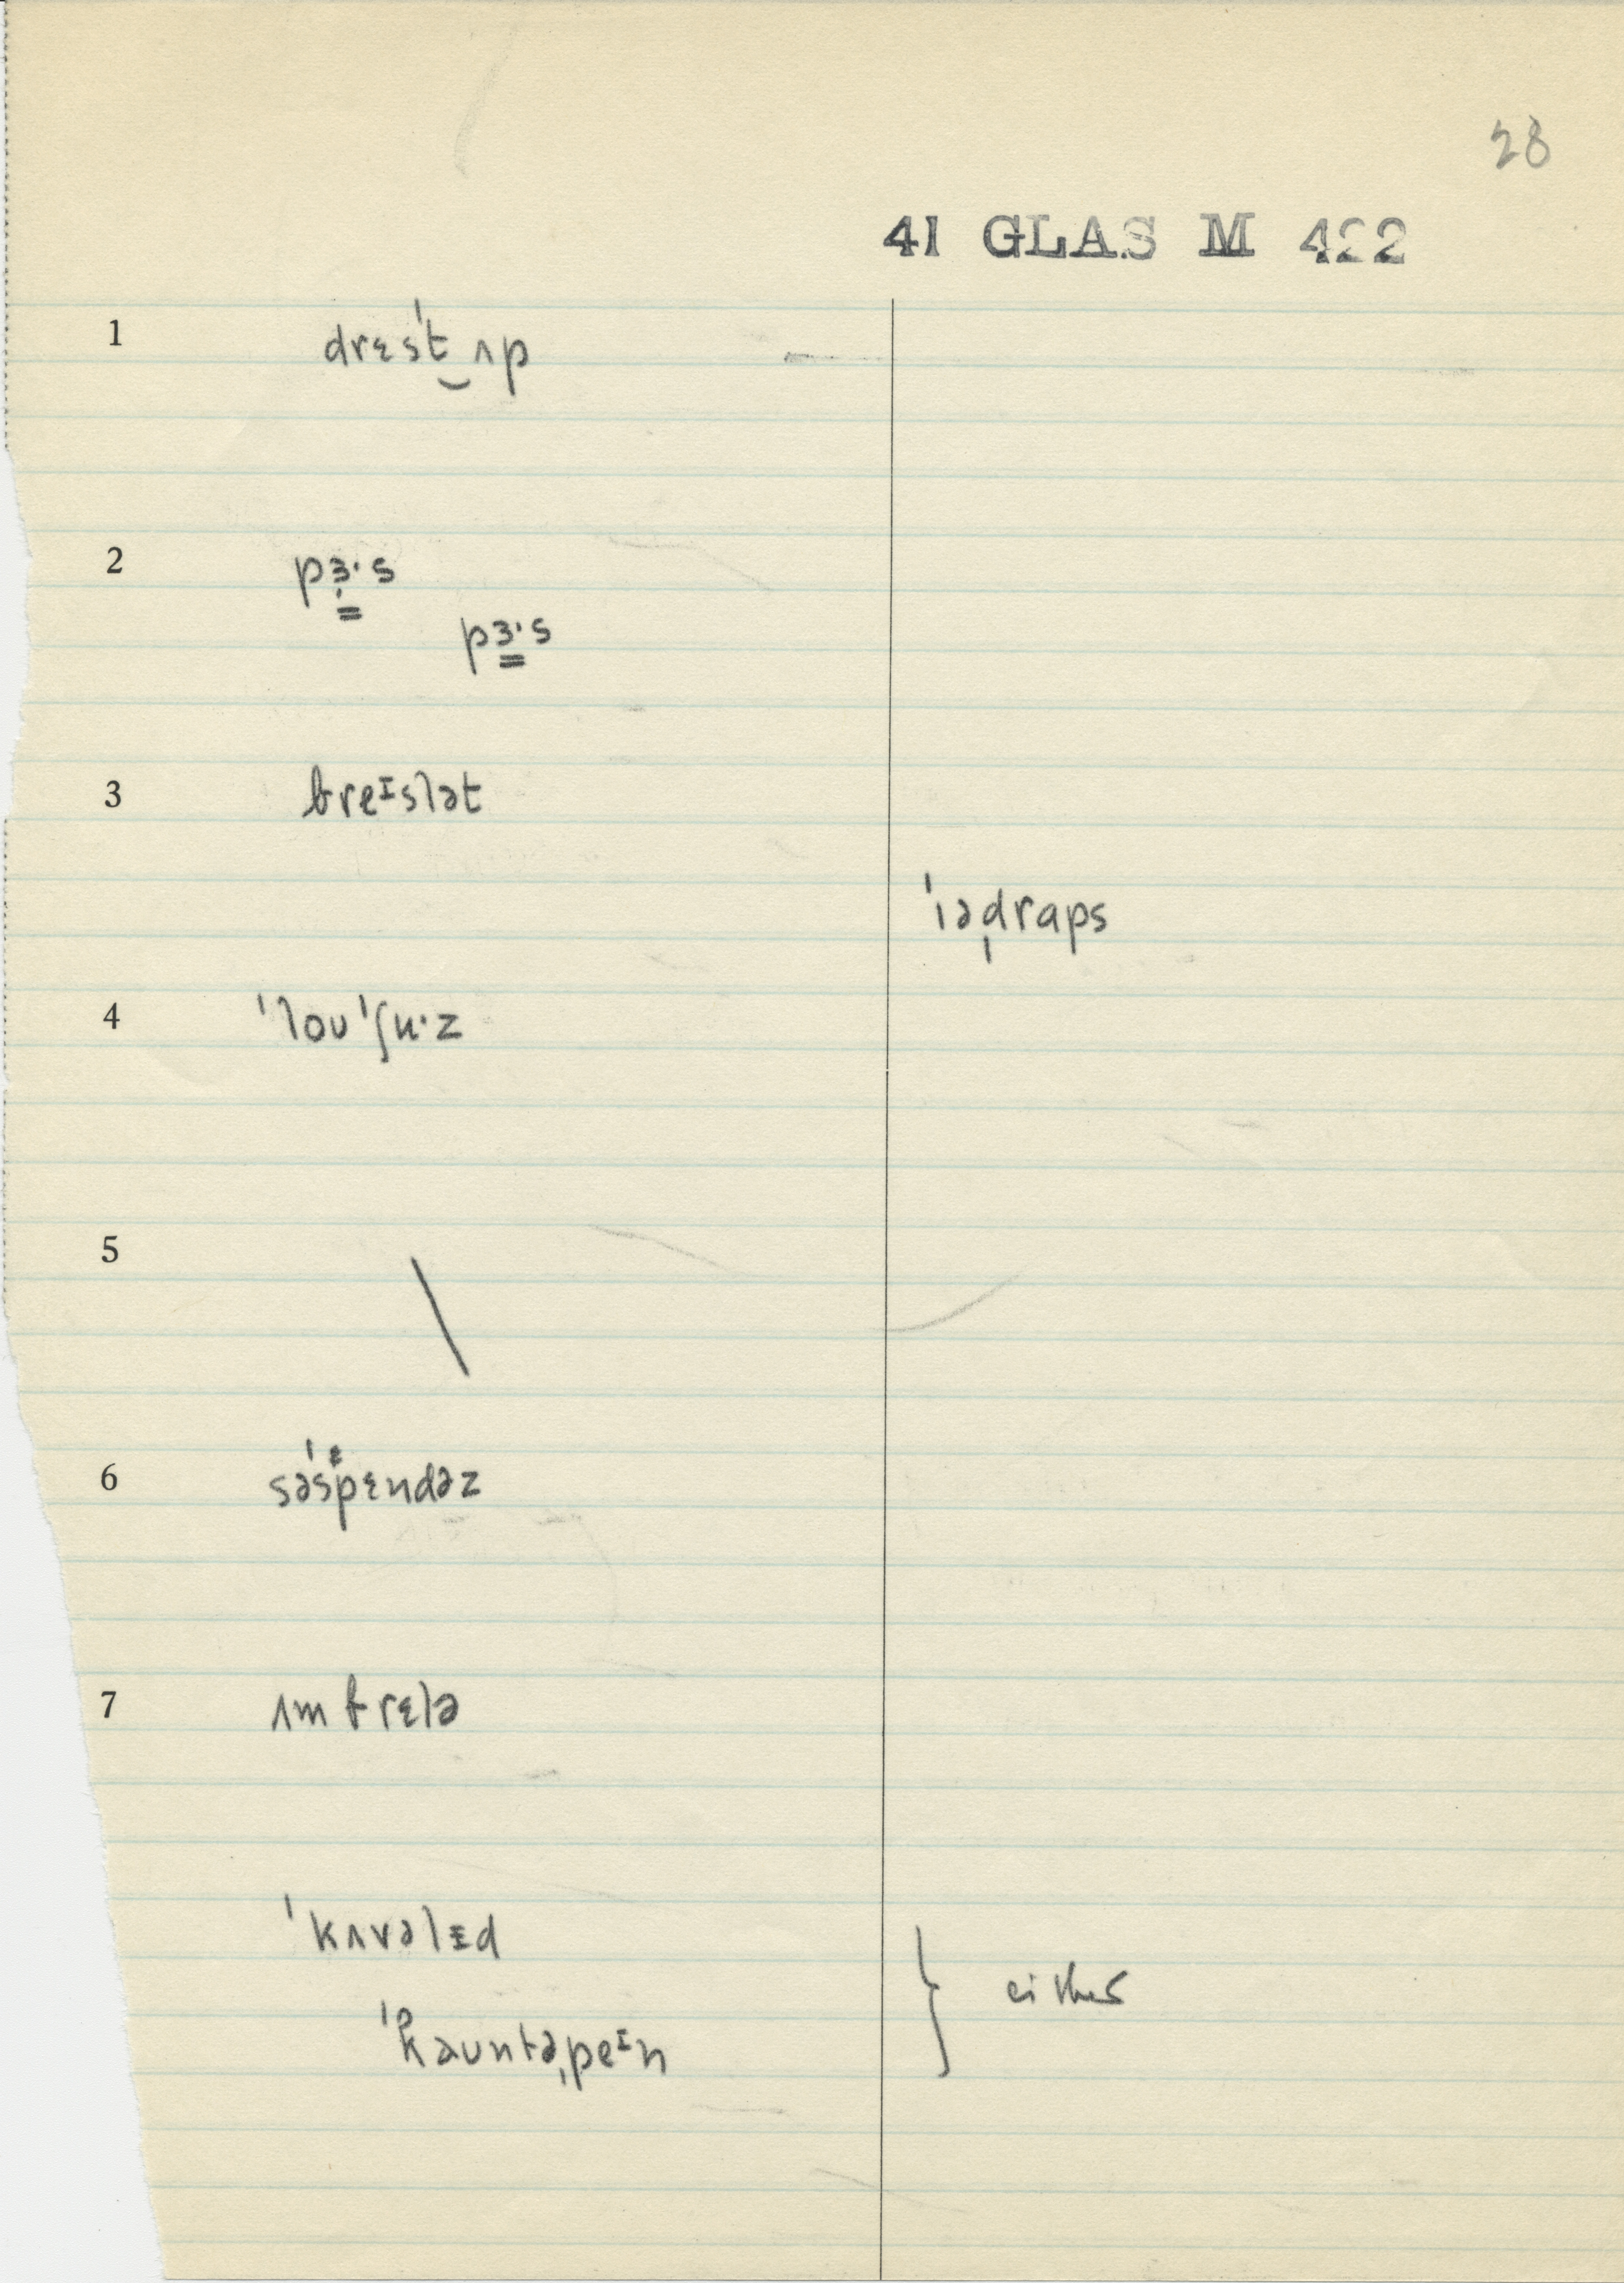 28
41 GLAS M 422
1 drɛsˈt‿ʌp
2 pɜ̣·s
pɜ·s
3 breᶦslət
ˈɪəˌdraps
4 ˈloʊˈʃu·z
5 \
6 səsˈpɛndəz
7 ʌmbrɛlə
ˈkʌvəlɪd
ˈkaʊntəˌpeᶦn } either